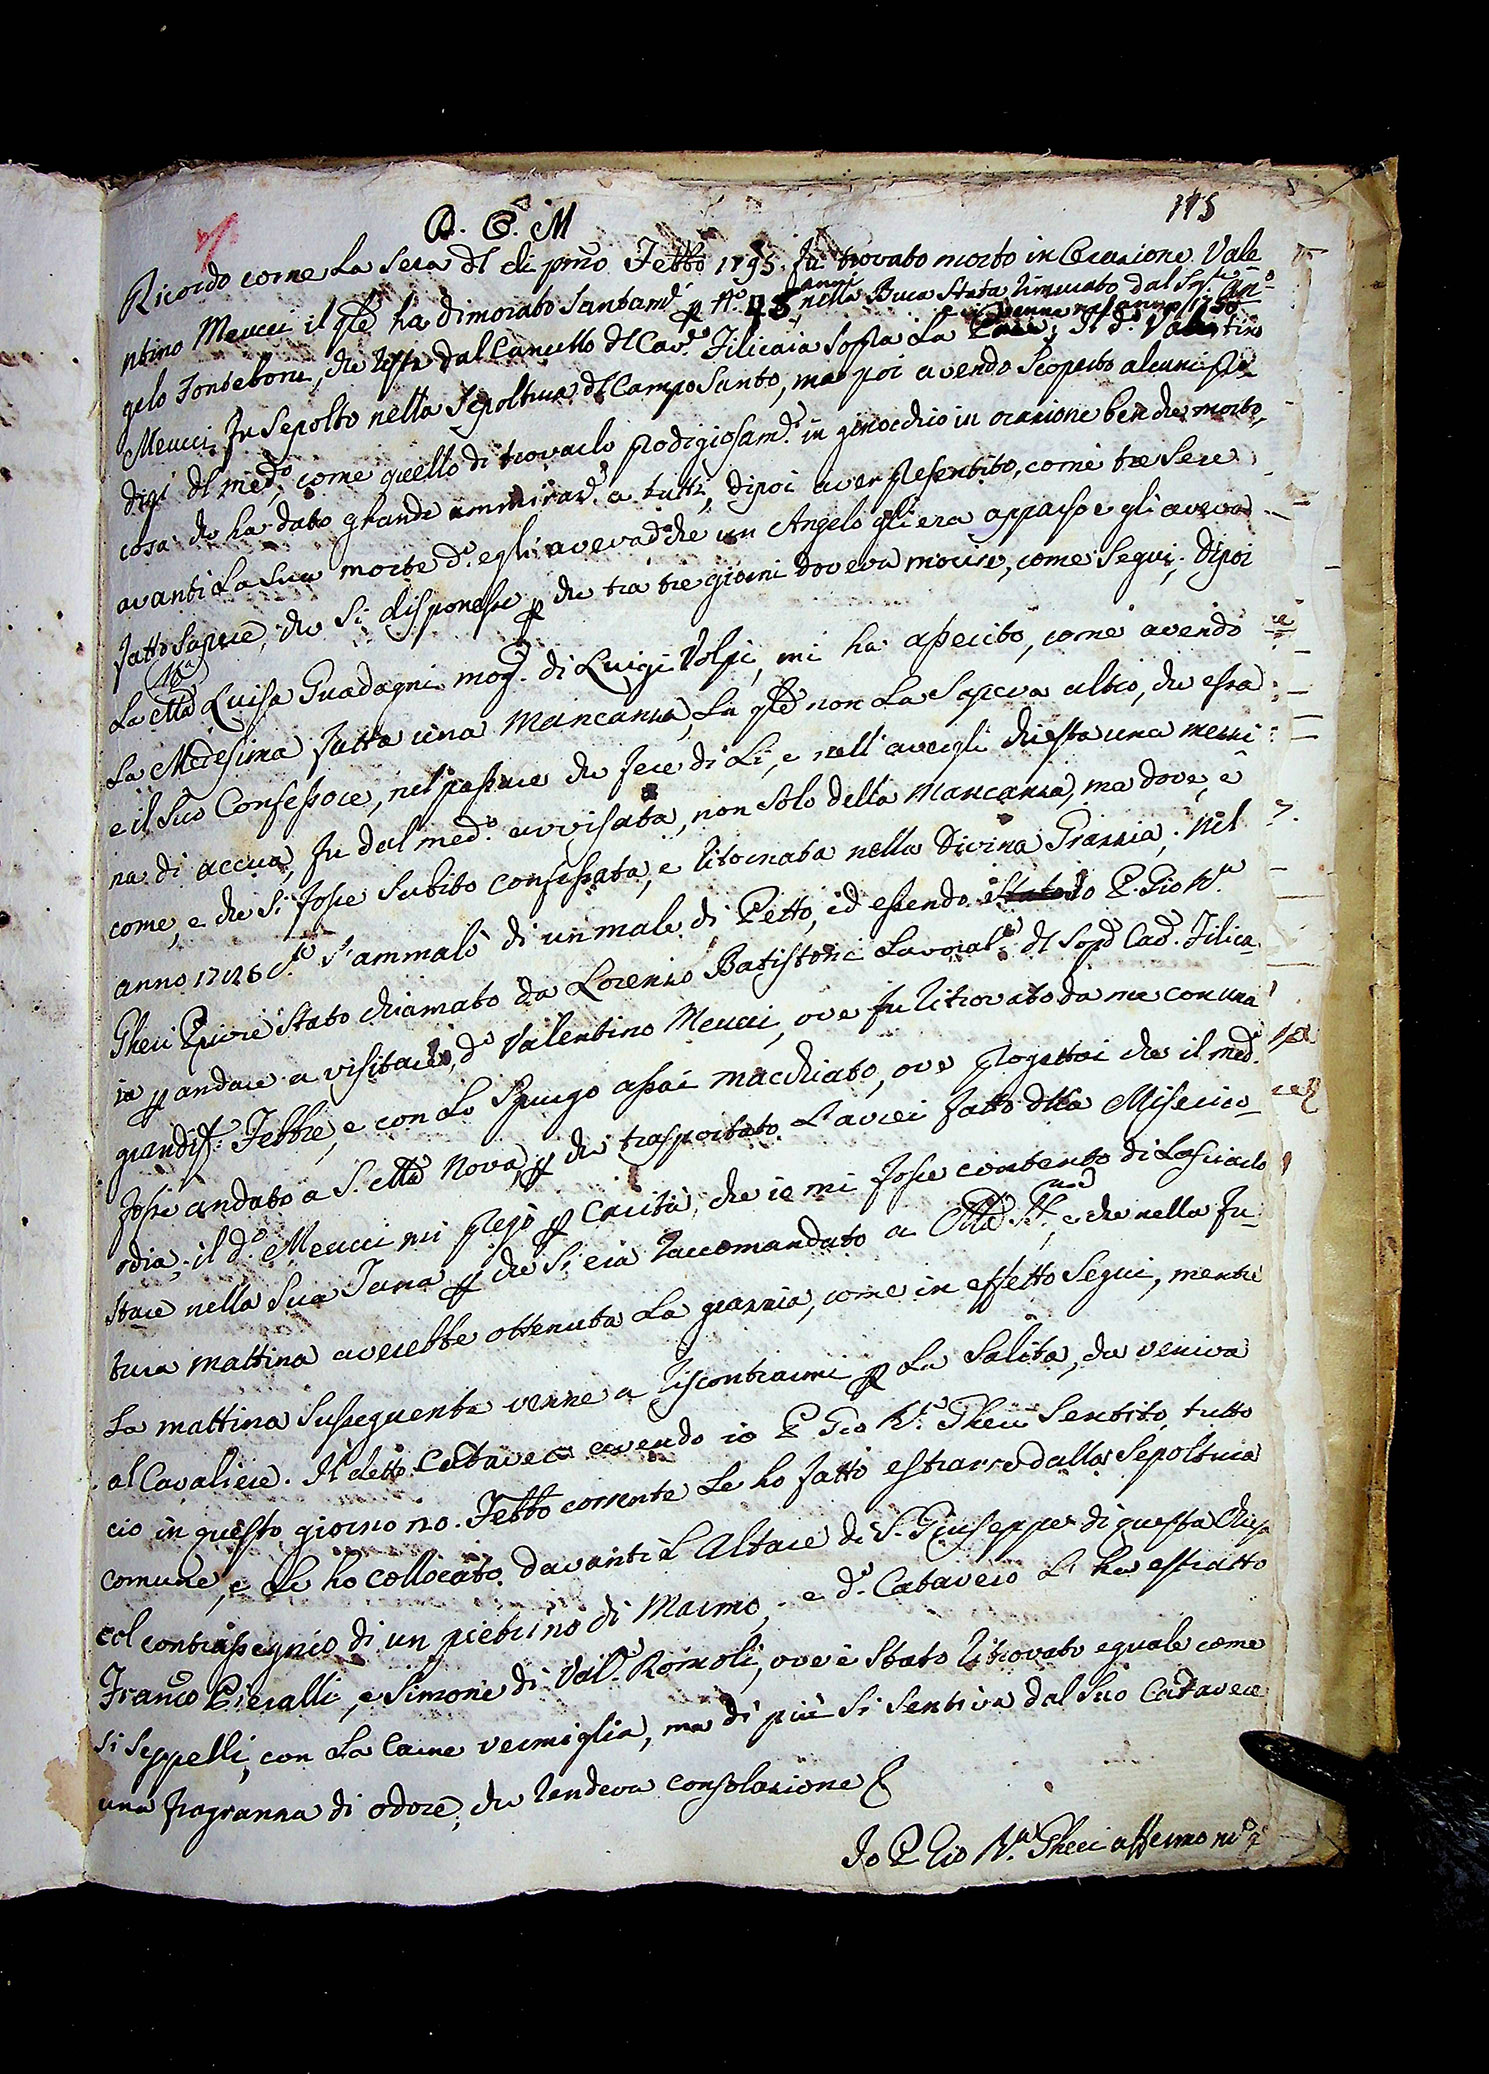 115
Ricordo come La Sera dl di pmo Febbo 1795. fu trovato morto in Orazione Vale
ntino Meucci il qle ha dimorato Santame p no. 45 anni nella Buca Stata rimurata dal Sigr. An
gelo Fonteboni, che resta dal Cancello dl Cave. Filicaia sopra La venne nel anno 1750 Il d. Valentino
Meucci fu Sepolto nella Sepoltura dl Campo Santo, ma poi avendo Scoperto alcuni pro
digi dl medo. come quello di trovarlo prodigiosame. in ginocchio in orazione ben che morto,
cosa che ha dato grande ammiraze. a tutti, dipoi aver presentito, come tre Sere
avanti La Sua morte do. egli aveva do. che un Angelo gli era apparso e gli aveva
fatto Sapere, che Si disponesse p che tra tre giorni doveva morire, come Seguì. Dipoi
La Ma. Luisa Guadagni mog. di Luigi Volpi, mi ha asserito, come avendo
La Medesima fatta una Mancanza, La qle non La Sapeva altro, che essa
e il Suo Confessore, nel passare che fece di Lì, e nell' avergli chiesta una mezzi
na di accua, fu dal medo. avvisata, non Solo della Mancanza, ma dove, e
come, e che Si fosse Subito confessata, e ritornata nella Divina Grazzia. Nel
anno S'ammalò di un male di Petto, ed essendo io P. Gio Ba.
Gheri Priore Stato chiamato da Lorenzo Batistoni Lavorate. dl Sopd. Cav. Filica
ia p andare a visitare do. Valentino Meucci, ove fu ritrovato da me con una
grandisa. Febbre, e con Lo Spurgo assai macchiato, ove progettai che il medo.
fosse andato a S. Ma Nova, p che trasportato L'avrei fatto dlla Miserico
rdia, il do. Meucci mi pregò p carità, che io mi fosse contento di Lasciarlo
Stare nella Sua Tana p che Si era raccomandato a Ma. SSma, e che nella fu
tura mattina averebbe ottenuta La grazzia, come in effetto Seguì, mentre
La mattina Susseguente venne a riscontrarmi p La Salita, che veniva
al Cavaliere. Il detto Cadavere avendo io P. Gio Ba. Gheri Sentito tutto
ciò in questo giorno 20. Febbo corrente Le ho fatto estrarre dalla Sepoltura
comune, e Le ho collocato davanti L'Altare di S. Giuseppe di questa Chiesa
col contrassegnio di un pietrino di Marmo, e do. Catavero L'ha estratto
Franco Pieralli, e Simone di Vale. Romoli, ove è Stato ritrovato eguale come
Si Seppellì, con La Carne vermiglia, ma di più Si Sentiva dal Suo Cadavere
una fragranza di odore, che rendeva consolazione
Io P Gio Ba. Gheri affermo